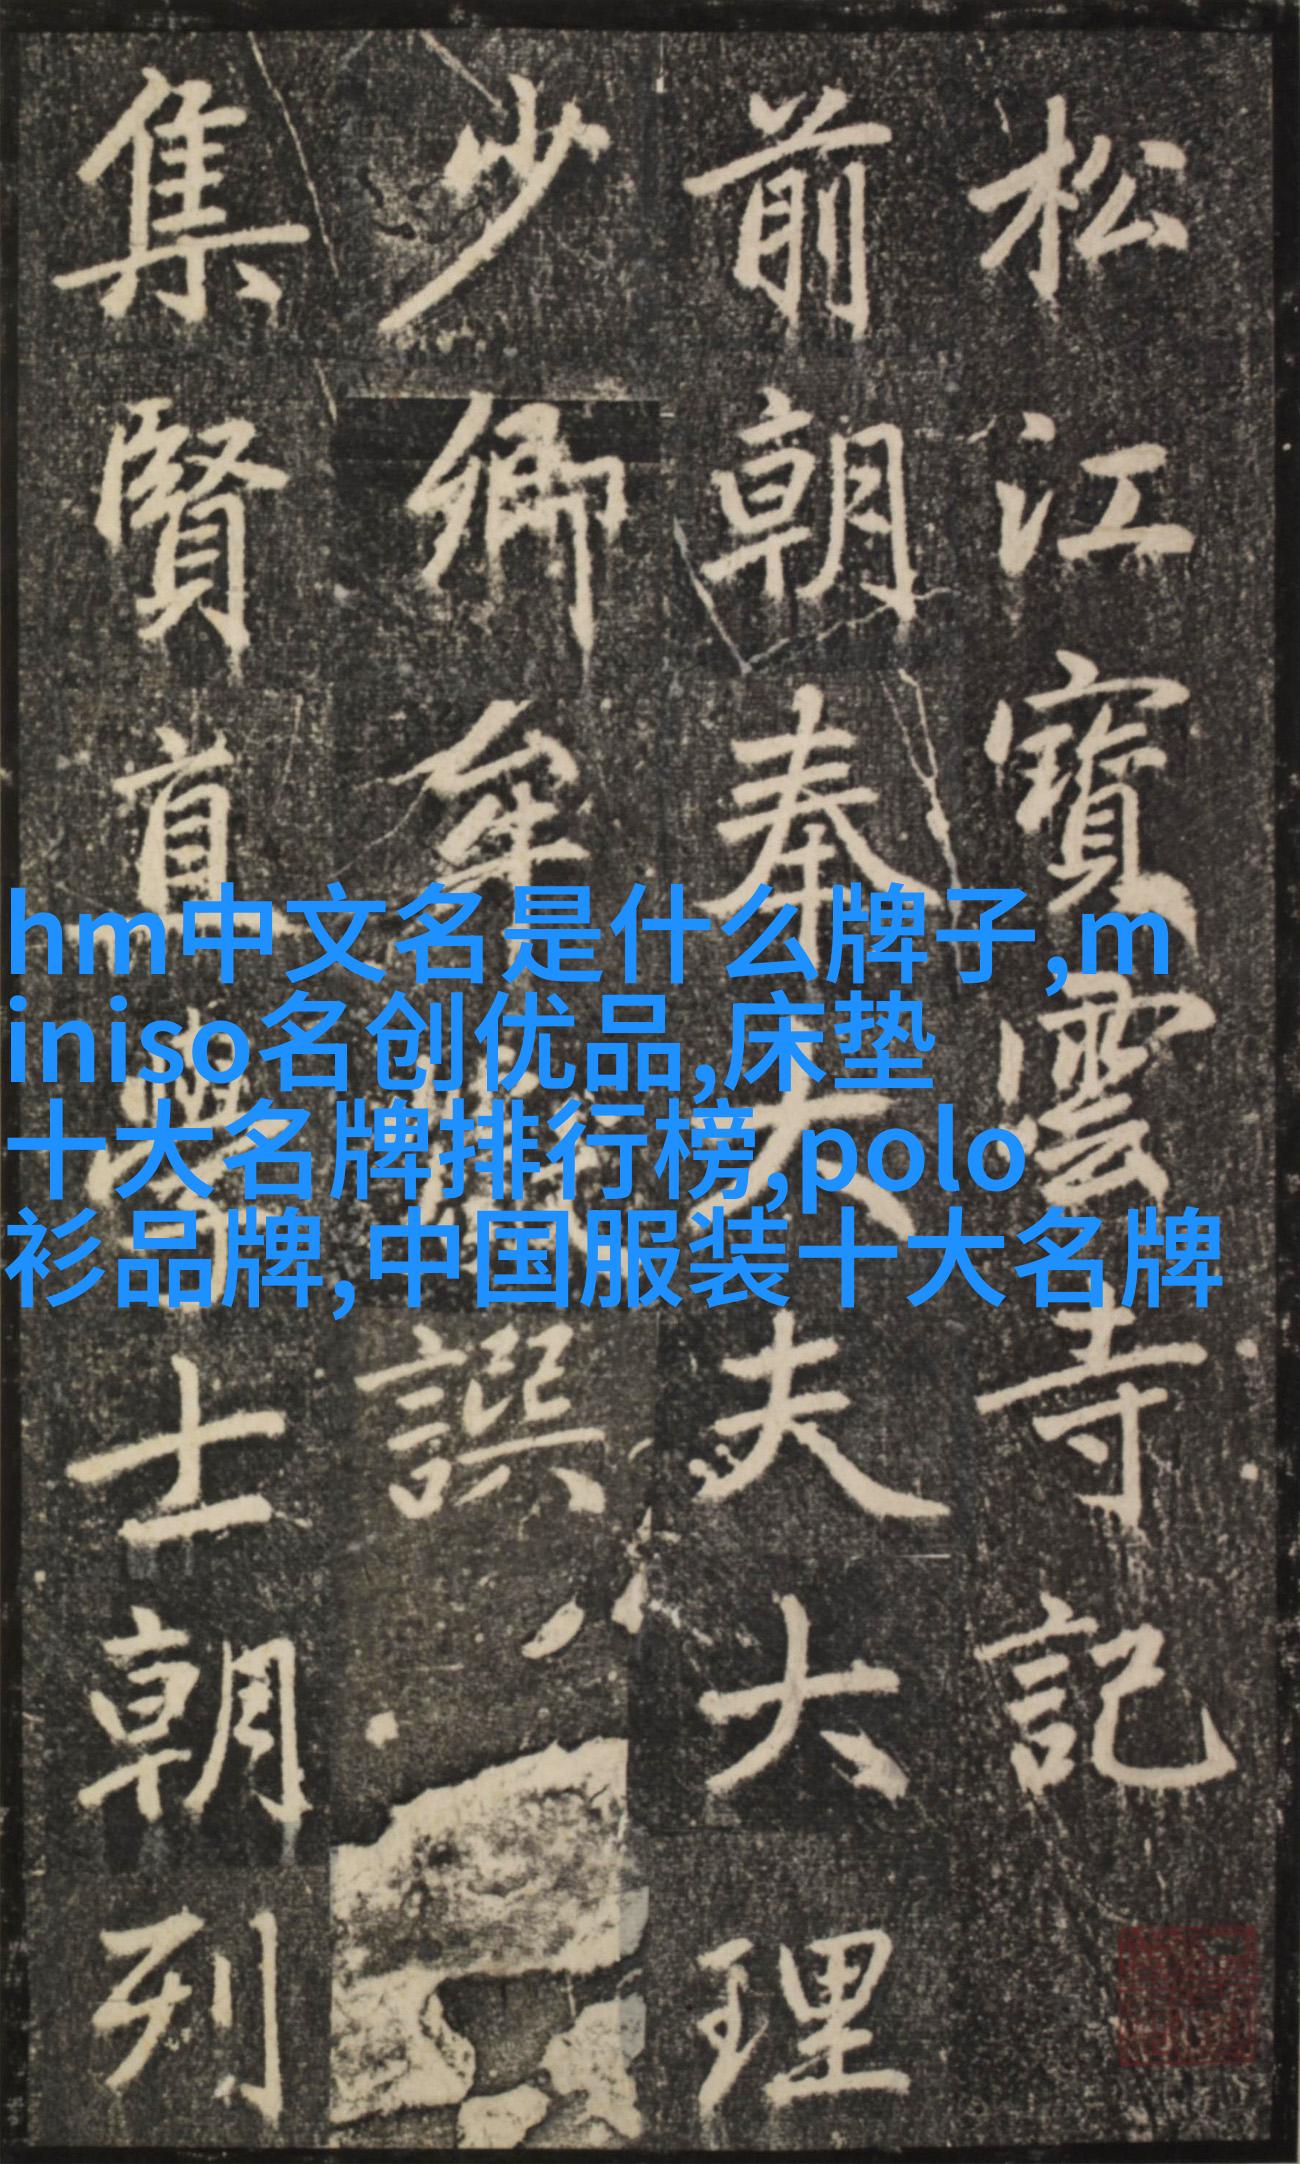 松江寶雲寺記
前朝奉大夫大理
少卿牟巘譔
集賢直學士朝列
hm中文名是什么牌子,m
iniso名创优品,床垫
十大名牌排行榜,polo
衫品牌,中国服装十大名牌